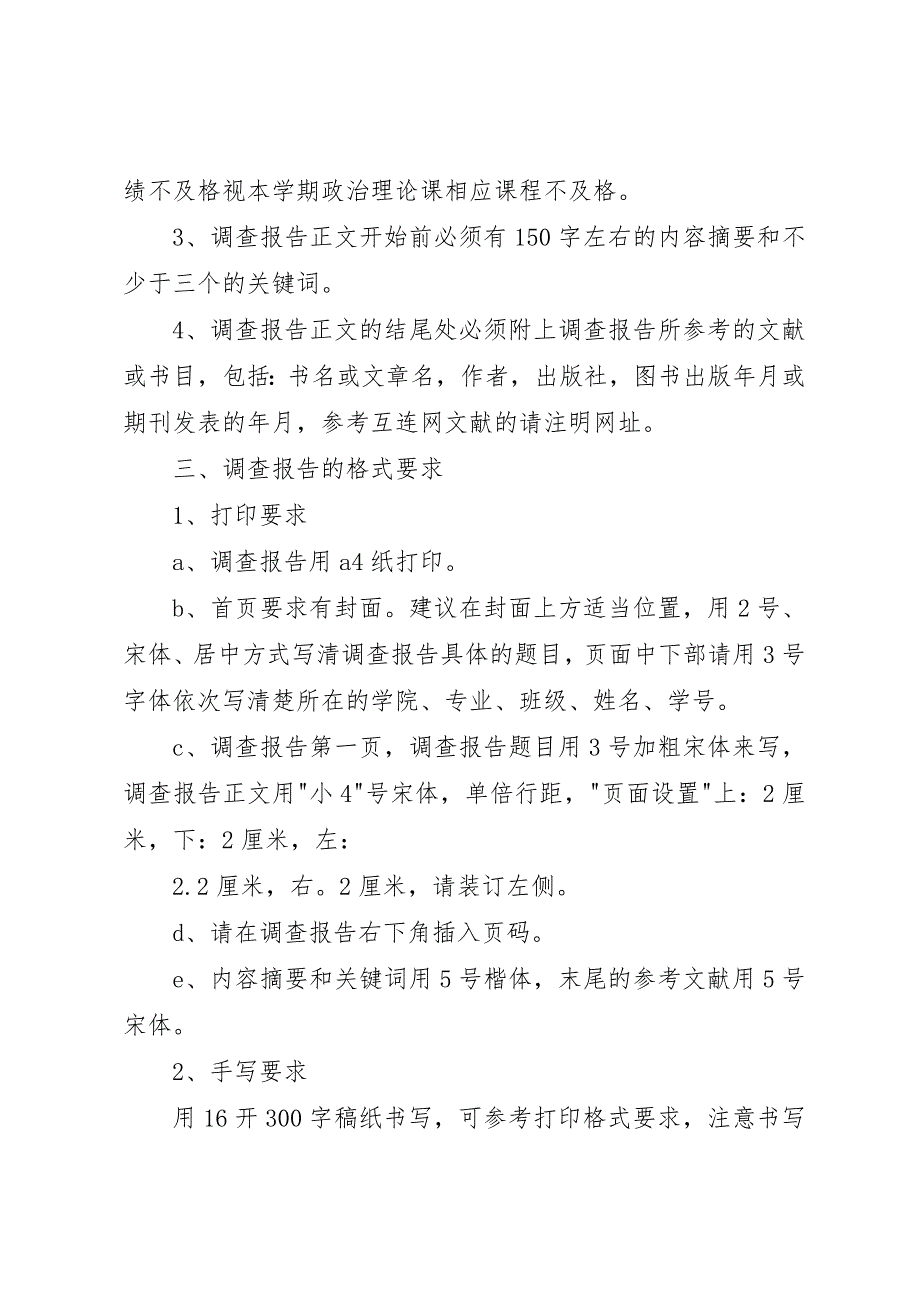 绩不及格视本学期政治理论课相应课程不及格。
3、调查报告正文开始前必须有 150 字左右的内容摘要和不
少于三个的关键词。
4、调查报告正文的结尾处必须附上调查报告所参考的文献
或书目，包括：书名或文章名，作者，出版社，图书出版年月或
期刊发表的年月，参考互连网文献的请注明网址。
三、调查报告的格式要求
1、打印要求
a、调查报告用 a4 纸打印。
b、首页要求有封面。建议在封面上方适当位置，用 2 号、
宋体、居中方式写清调查报告具体的题目，页面中下部请用 3 号
字体依次写清楚所在的学院、专业、班级、姓名、学号。
c、调查报告第一页，调查报告题目用 3 号加粗宋体来写，
调查报告正文用"小 4"号宋体，单倍行距，"页面设置"上：2 厘
米，下：2 厘米，左：
2.2 厘米，右。2 厘米，请装订左侧。
d、请在调查报告右下角插入页码。
e、内容摘要和关键词用 5 号楷体，末尾的参考文献用 5 号
宋体。
2、手写要求
用 16 开 300 字稿纸书写，可参考打印格式要求，注意书写